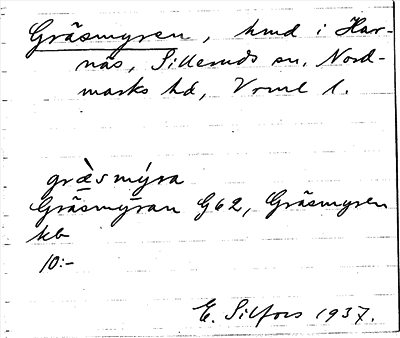 Gräsmyren, hmd i Har-
näs, Silleruds sn, Nord-
marks hd, Vrml l.
græ̀smýra
Gräsmyran G62, Gräsmyren
kb
10:-
E. Silfors 1937.